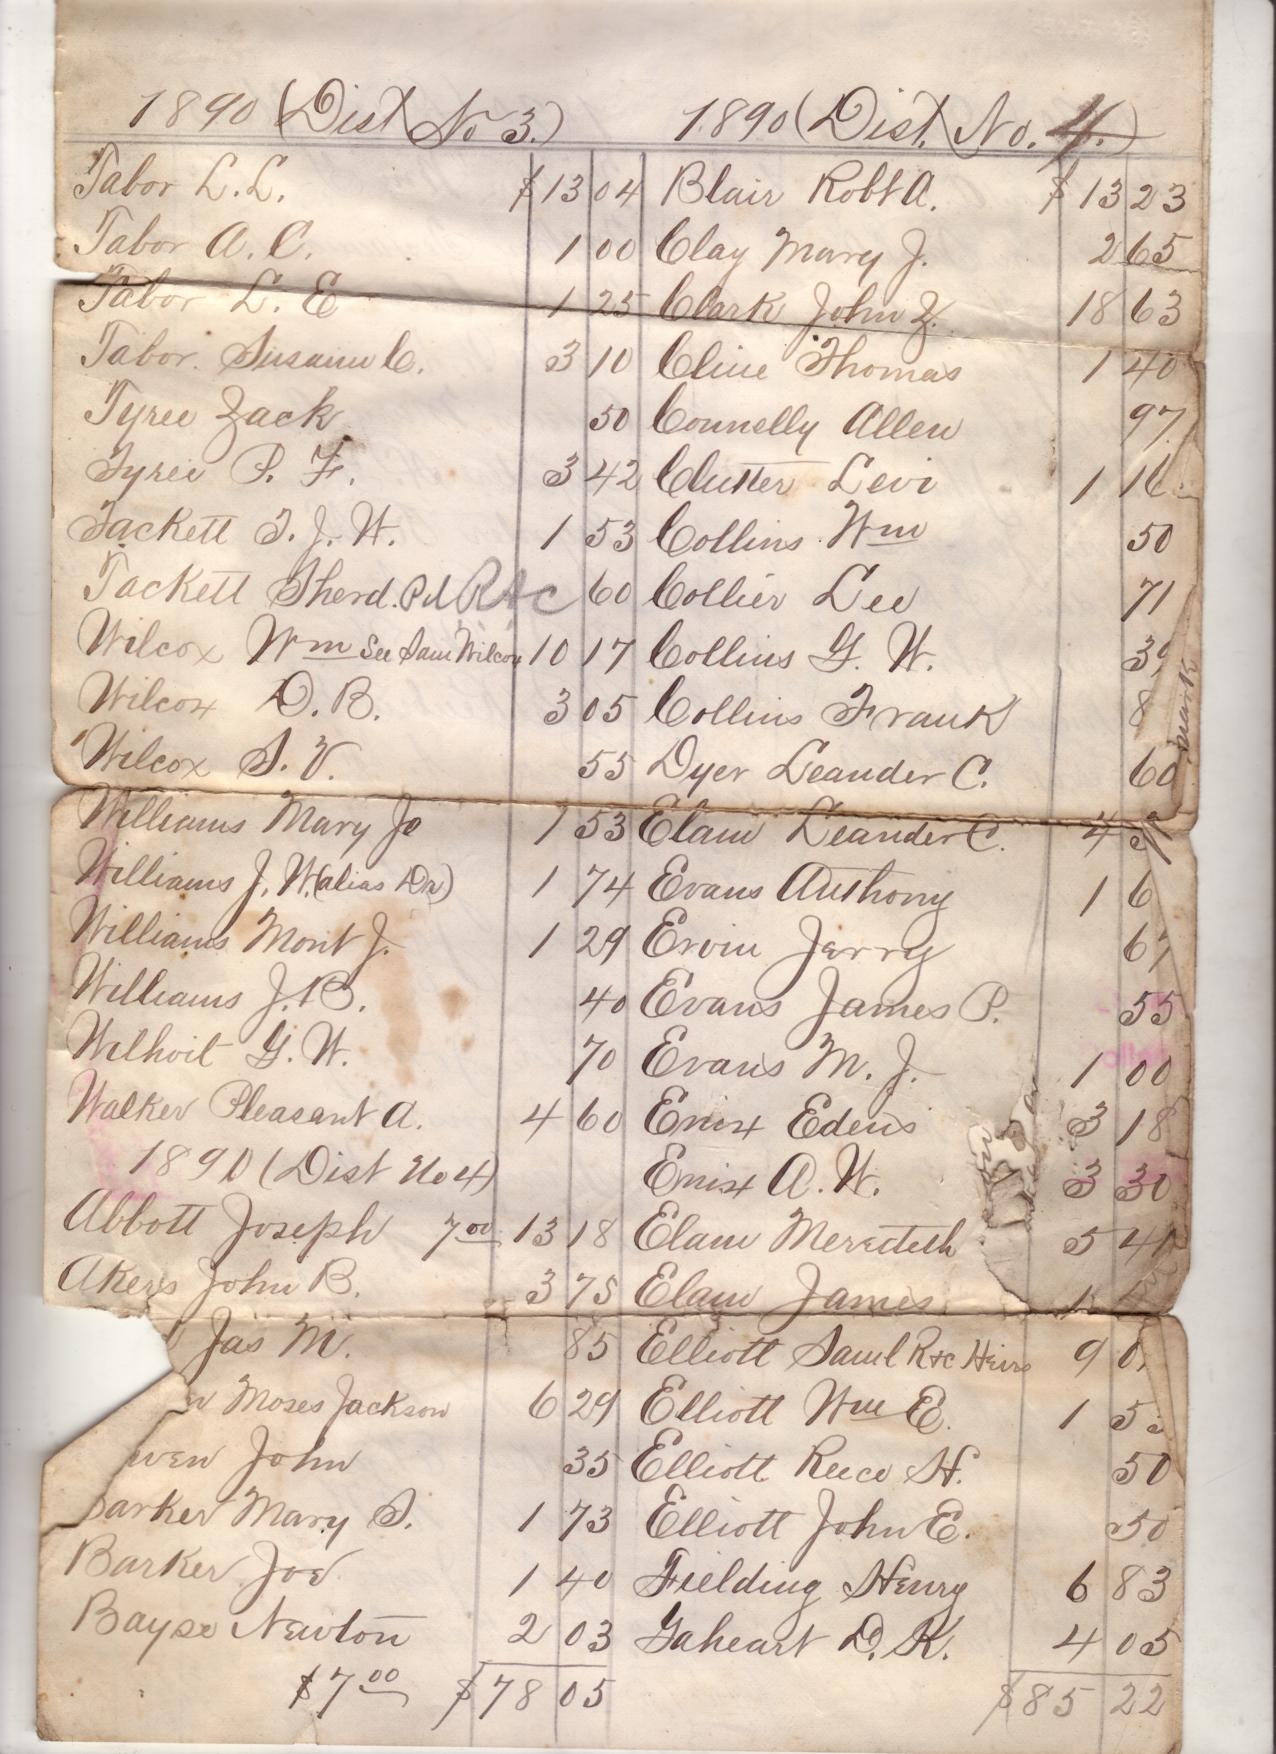 1890 (Dist No 3.)
Tabor L. L. $13 04
Tabor A. C. 1 00
Tabor L. E 1 25
Tabor. Susann C. 3 10
Tyree Zack 50
Tyree P. F. 3 42
Tackett T. J. W. 1 53
Tackett Sherd. Pd R+c 60
Wilcox Wm See Sam Wilcox 10 17
Wilcox D. B. 3 05
Wilcox S. V. 55
Williams Mary Jo 1 53
Williams J. W. (alias Dr) 1 74
Williams Mont J. 1 29
Williams J. B. 40
Wilhoit G. W. 70
Walker Pleasant A. 4 60
1890 (Dist No 4)
Abbott Joseph 7 00 13 18
Akers John B. 3 75
Jas M. 85
n Moses Jackson 6 29
wen John 35
Barker Mary S. 1 73
Barker Joe 1 40
Bayse Newton 2 03
$7 00 $78 05
1890 (Dist. No. 4.)
Blair Robt A. $13 23
Clay Mary J. 2 65
Clark John Z. 18 63
Cline Thomas 1 40
Connelly Allen 97
Clutter Levi 1 16
Collins Wm 50
Collier Lee 71
Collins G. W. 39
Collins Frank 8
mark
Dyer Leander C. 60
Elam Leander C. 4 5
Evans Anthony 1 6
Ervin Jerry 67
Evans James P. 55
Evans M. J. 1 00
Enix Edens 3 18
Enix A. W. 3 30
Elam Meredeth 5 41
Elam James 1
Elliott Saml R+c Heirs 9 0
Elliott Wm E. 1 5
Elliott Reece H. 50
Elliott John E. 50
Fielding Henry 6 83
Gaheart D. K. 4 05
$85 22